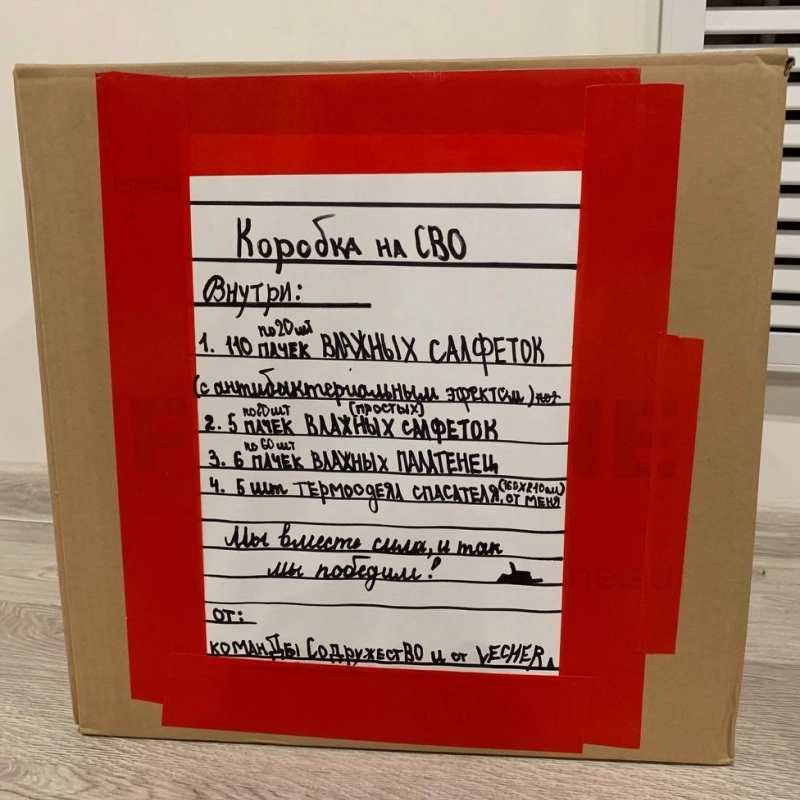 Коробка на СВО
Внутри:
по 20 шт
1. 110 пачек влажных салфеток
(с антибактериальным эфектом)
по 20 шт (простых)
2. 5 пачек влажных салфеток
по 60 шт
3. 6 пачек влажных палатенец
4. 5 шт термоодеял спасателя, (160х210см) от меня
Мы вместе сила, и так
мы победим!
от:
команды СодружестВО и от LECHER